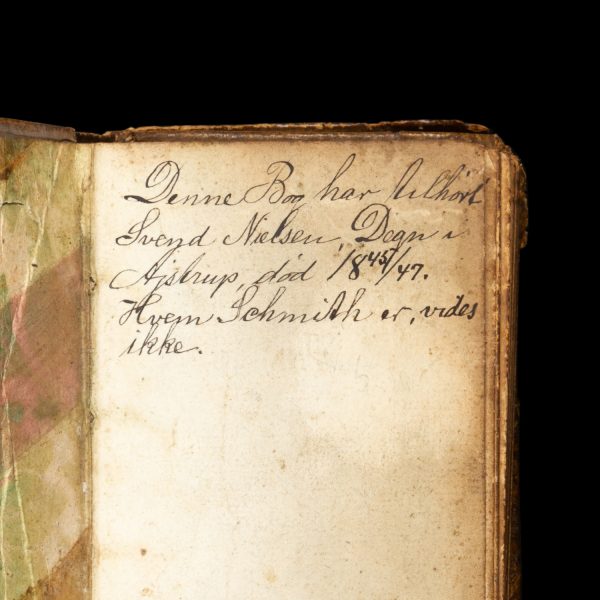 Denne Bog har tilhört
Svend Nielsen, Degn i
Ajstrup, död 1845/47.
Hvem Schmith er, vides
ikke.